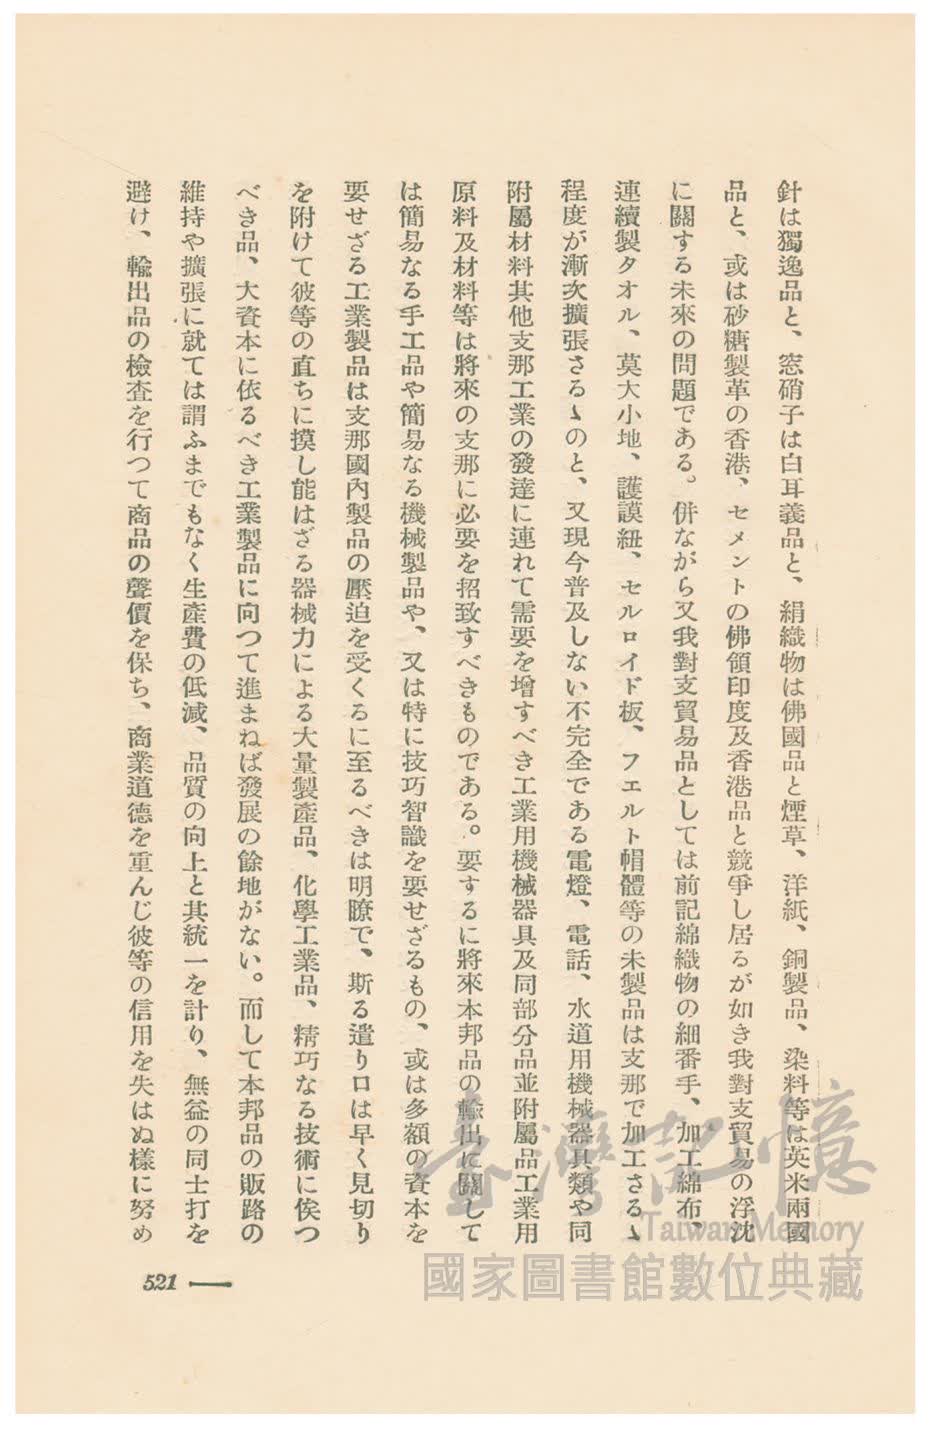 針は獨逸品と、窓硝子は白耳義品と、絹織物は佛國品と煙草、洋紙、銅製品、染料等は英米兩國
品と、或は砂糖製革の香港、セメントの佛領印度及香港品と競爭し居るが如き我對支貿易の浮沈
に關する未來の問題である。併ながら又我對支貿易品としては前記綿織物の細番手、加工綿布、
連續製タオル、莫大小地、護謨紐、セルロイド板、フエルト帽體等の未製品は支那で加工さるゝ
程度が漸次擴張さるゝのと、又現今普及しない不完全である電燈、電話、水道用機械器具類や同
附屬材料其他支那工業の發達に連れて需要を增すべき工業用機械器具及同部分品並附屬品工業用
原料及材料等は將來の支那に必要を招致すべきものである。要するに將來本邦品の輸出に關して
は簡易なる手工品や簡易なる機械製品や、又は特に技巧智識を要せざるもの、或は多額の資本を
要せざる工業製品は支那國內製品の壓迫を受くるに至るべきは明瞭で、斯る遣り口は早く見切り
を附けて彼等の直ちに摸し能はざる器械力による大量製產品、化學工業品、精巧なる技術に俟つ
べき品、大資本に依るべき工業製品に向つて進まねば發展の餘地がない。而して本邦品の販路の
維持や擴張に就ては謂ふまでもなく生產費の低減、品質の向上と其統一を計り、無益の同士打を
避け、輸出品の檢査を行つて商品の聲價を保ち、商業道德を重んじ彼等の信用を失はぬ樣に努め
521
臺灣記憶
Taiwan Memory
國家圖書館數位典藏